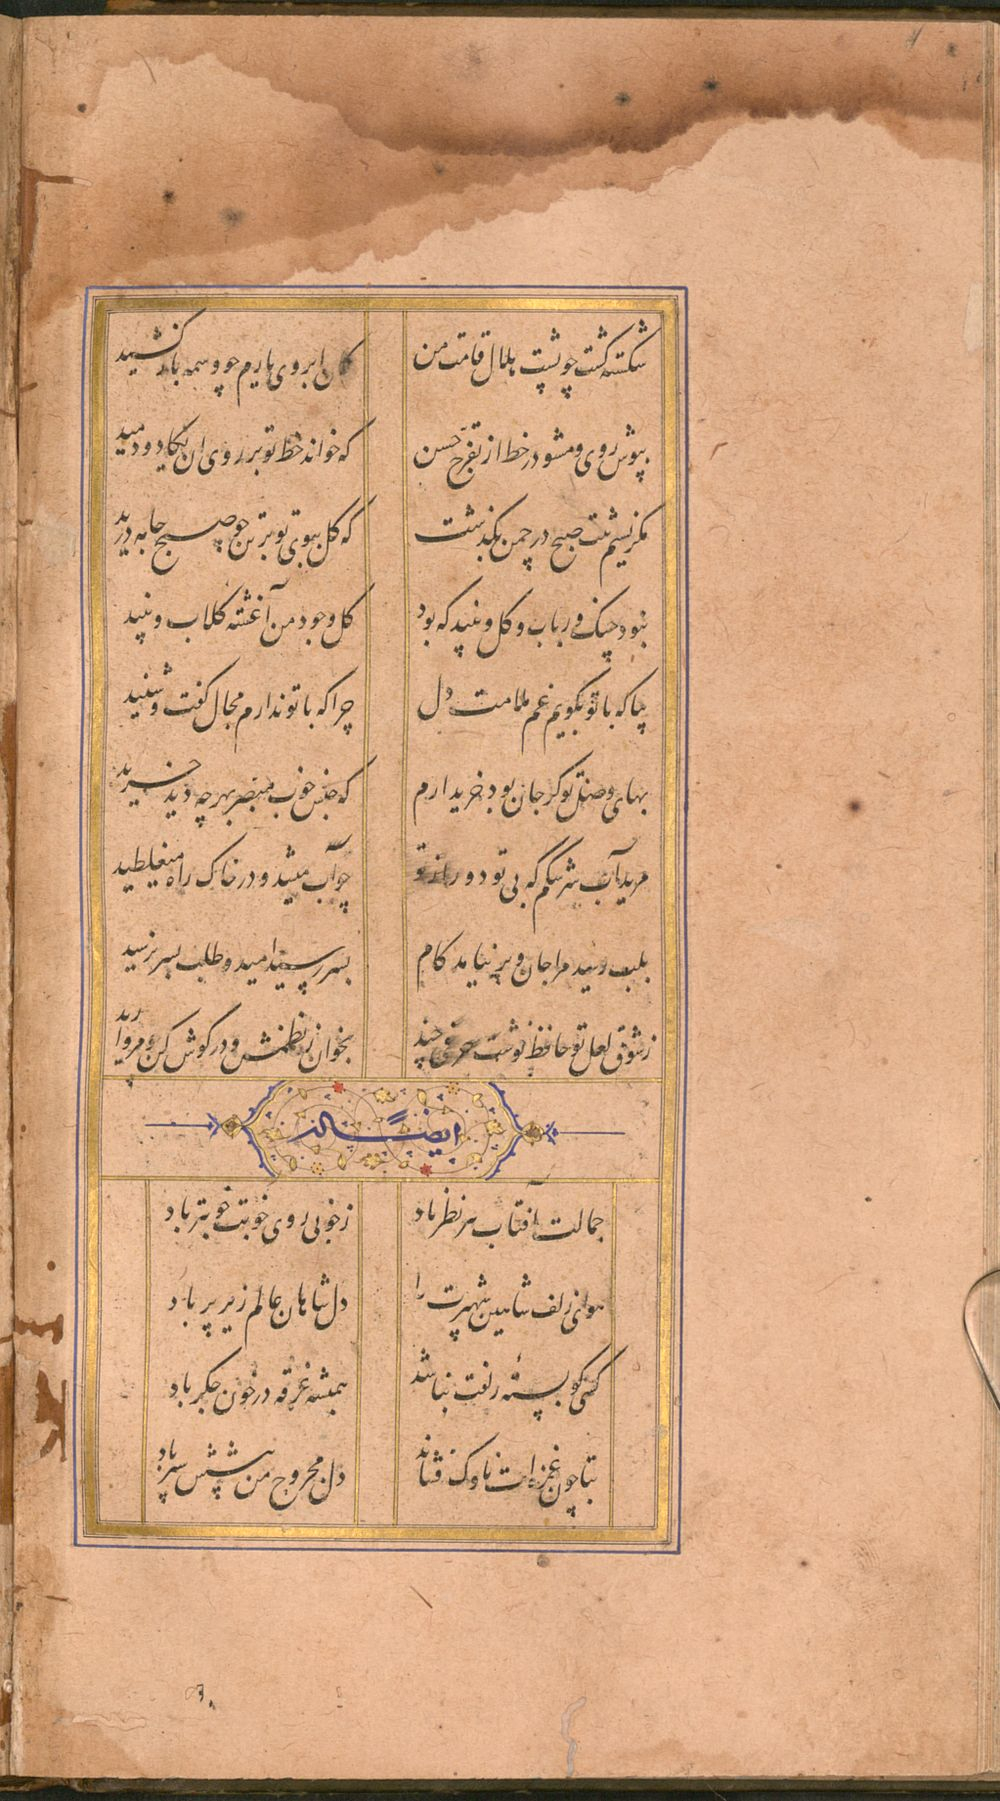 شکسته گشت چو پشت هلال قامت من کمان ابروی یارم چو وسمه باز کشید
بپوش روی و مشو در خط از تفرج حسن که خواند خط تو بر روی ان یکاد و دمید
مکر نسیم تنت صبح در چمن بکذشت که کل ببوی تو بر تن چو صبح جامه درید
نبود چنک و رباب و کل و نبید که بود کل وجود من آغشته کلاب و نبید
بیا که با تو بکویم غم ملامت دل چرا که با تو ندارم مجال کفت و شنید
بهای وصل تو کر جان بود خریدارم که جنس خوب مبصر بهر چه دید خرید
مرید آب سرشکم که بی تو دور از تو چو آب میشد و در خاک راه میغلطید
بلب رسید مرا جان و بر نیامد کام بسر رسید امید و طلب بسر نرسید
ز شوق لعل تو حافظ نوشت حرفی چند بخوان ز نظمش و در کوش کن چو مروارید
ایضا له
جمالت آفتاب هر نظر باد ز خوبی روی خوبت خوبتر باد
همای زلف شاهین شهپرت را دل شاهان عالم زیر پر باد
کسی کو بسته زلفت نباشد همیشه غرقه در خون جکر باد
بتا چون غمزه ات ناوک فشاند دل مجروح من پیشش سپر باد